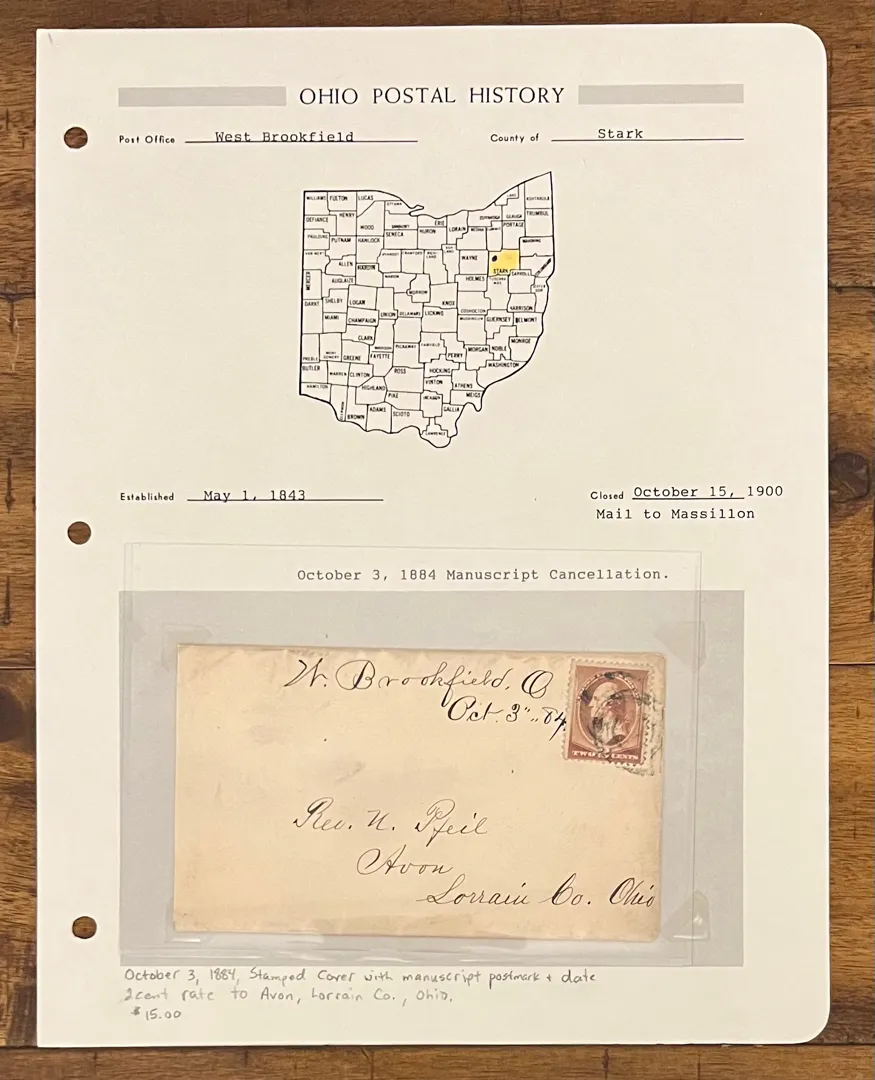 OHIO POSTAL HISTORY
Post Office West Brookfield County of Stark
WILLIAMS FULTON LUCAS
LAKE ASHTABULA
OTTAWA
DEFIANCE HENRY
GEAUGA TRUMBULL
WOOD SANDUSKY ERIE PORTAGE
PAULDING PUTNAM HANCOCK SENECA HURON LORAIN MEDINA
ALLEN CRAWFORD WAYNE
HARDIN STARK
MERCER AUGLAIZE MARION HOLMES CARROLL
MORROW
DARKE SHELBY LOGAN KNOX HARRISON
UNION DELAWARE LICKING COSHOCTON
MIAMI CHAMPAIGN GUERNSEY BELMONT
CLARK MONROE
PREBLE GREENE FAYETTE PICKAWAY FAIRFIELD PERRY MORGAN NOBLE
BUTLER WARREN CLINTON ROSS HOCKING WASHINGTON
HAMILTON HIGHLAND VINTON ATHENS
PIKE JACKSON MEIGS
BROWN ADAMS SCIOTO GALLIA
LAWRENCE
Established May 1, 1843 Closed October 15, 1900
Mail to Massillon
October 3, 1884 Manuscript Cancellation.
W. Brookfield, O
Oct. 3" .. 84,
TWO CENTS
Rev. N. Pfeil
Avon
Lorrain Co. Ohio
October 3, 1884, Stamped Cover with manuscript postmark + date
2cent rate to Avon, Lorrain Co., Ohio.
$15.00